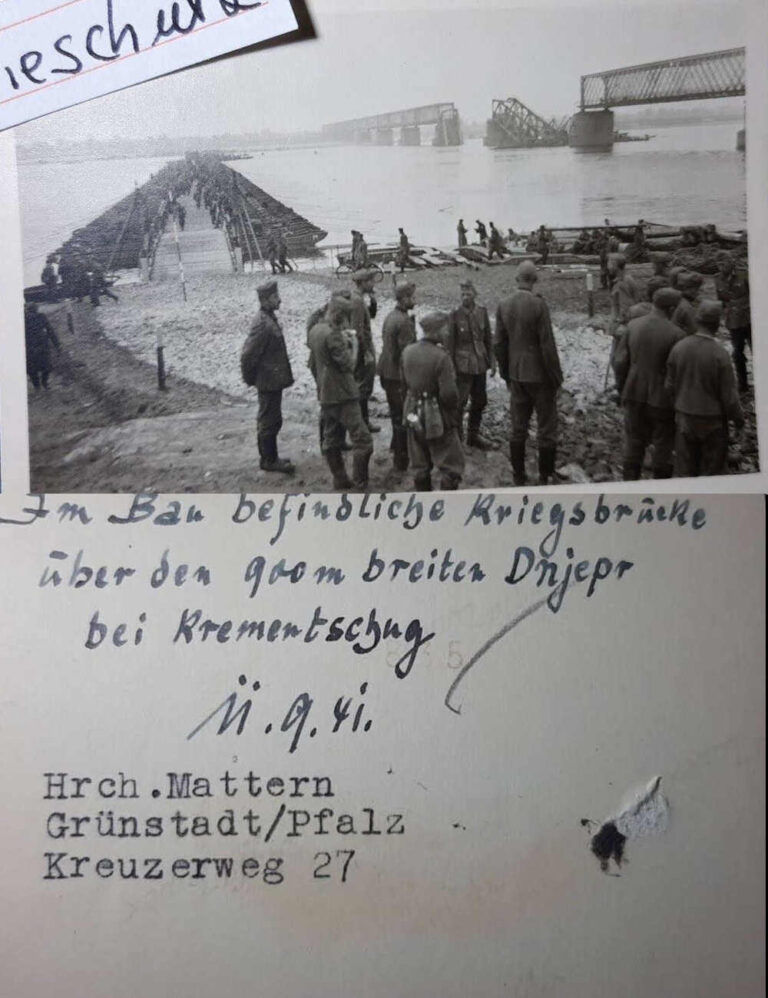 Im Bau befindliche Kriegsbrücke
über den 900m breiten Dnjepr
bei Krementschug
11.9.41.
Hrch.Mattern
Grünstadt/Pfalz
Kreuzerweg 27